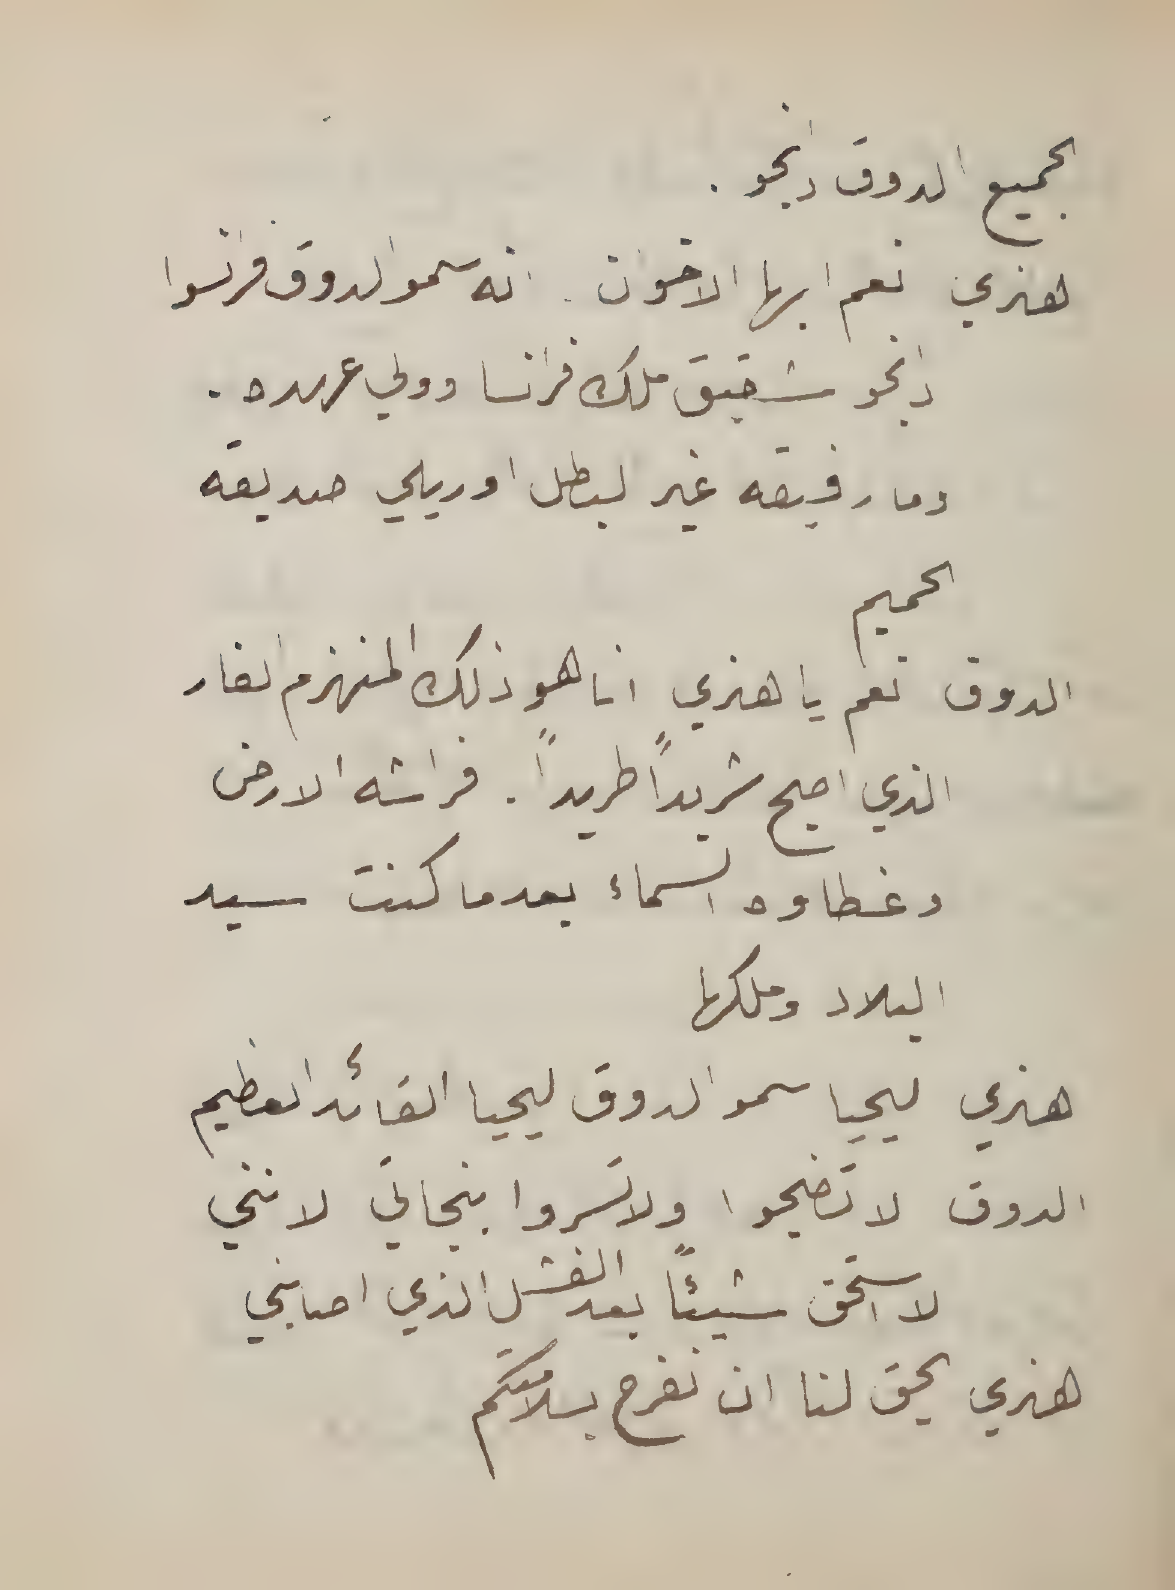 الجميع الدوق دانجو .
هنري نعم ايها الاخوان . انه سمو الدوق فرانسوا
دانجو شقيق ملك فرانسا وولي عهده .
وما رفيقه غير البطل اوريلي صديقه
الحميم
الدوق نعم يا هنري انا هو ذلك المنهزم الفار
الذي اصبح شريداً طريداً . فراشه الارض
وغطاوه السماء بعدما كنت سيد
البلاد وملكها
هنري ليحيا سمو الدوق ليحيا القائد العظيم
الدوق لا تضجوا ولا تسروا بنجاتي لانني
لا استحق شيئاً بعد الفشل الذي اصابني
هنري يحق لنا ان نفرح بسلامتكم